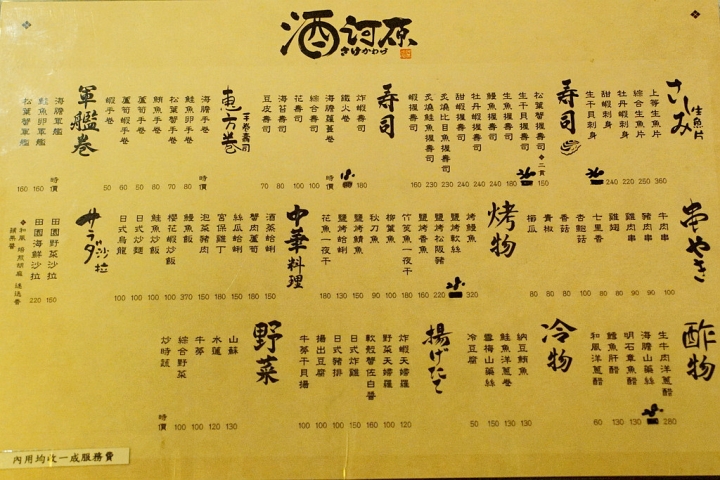 酒訶原
きけかわら
さしみ 生魚片
上等生魚片 360
綜合生魚片 250
牡丹蝦刺身 220
甜蝦刺身 240
生干貝刺身
壽司
松葉蟹握壽司 二貫 160
生干貝握壽司 180
生魚握壽司 110
鰻魚握壽司 110
牡丹蝦握壽司 240
甜蝦握壽司 230
炙燒比目魚握壽司 230
炙燒鮭魚握壽司 230
蝦握壽司 160
壽司
炸蝦壽司 180
鐵火卷
海膽蘆薈卷 時價
綜合壽司 100
花壽司 100
海苔壽司 80
豆皮壽司 70
惠方卷 手卷壽司
海膽手卷 時價
鮭魚卵手卷 80
松葉蟹手卷 70
鮪魚手卷 80
蘆筍手卷 50
蘆筍蝦手卷 60
蝦手卷 50
軍艦卷
海膽軍艦 時價
鮭魚卵軍艦 160
松葉蟹軍艦 160
串やき
牛肉串 100
豬肉串 90
雞肉串 80
雞翅 80
七里香 100
杏鮑菇 80
香菇 80
青椒 80
櫛瓜 80
烤物
烤鰻魚 320
鹽烤軟絲
鹽烤松阪豬 220
鹽烤香魚 160
竹筴魚一夜干 180
柳葉魚 100
秋刀魚 90
鹽烤鯖魚 150
鹽烤蛤蜊 130
花魚一夜干 180
中華料理
酒蒸蛤蜊 150
蟹肉蘆筍 180
絲瓜蛤蜊 150
宮保雞丁 180
泡菜豬肉 150
鰻魚飯 370
櫻花蝦炒飯 100
鮭魚炒飯 100
日式炒麵 100
日式烏龍 100
サラダ 沙拉
田園野菜沙拉 160
田園海鮮沙拉 220
酢物
生牛肉洋蔥醋 280
海膽山藥絲
明石章魚醋 130
鱈魚肝醋 130
和風洋蔥醋 60
冷物
納豆鮪魚 130
鮭魚洋蔥卷 130
雲梅山藥絲 150
冷豆腐 50
揚げたて
炸蝦天婦羅 120
野菜天婦羅 100
軟殼蟹佐白醬 160
日式炸雞 150
日式豬排 100
揚出豆腐 100
牛蒡干貝揚 100
野菜
山蘇 130
水蓮 120
牛蒡 100
綜合野菜 100
炒時蔬 時價
內用均收一成服務費